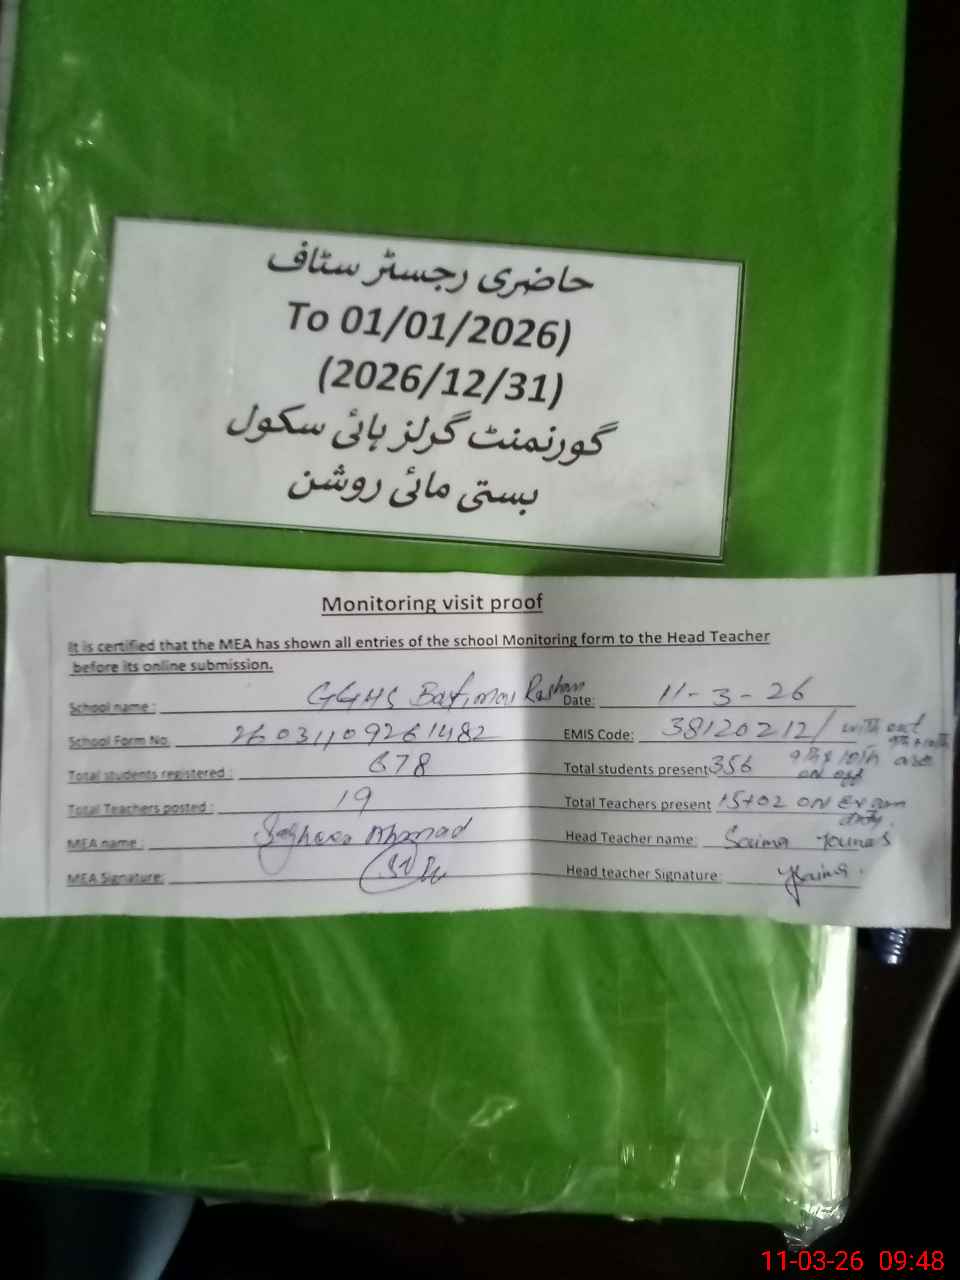 حاضری رجسٹر سٹاف
To 01/01/2026)
(2026/12/31)
گورنمنٹ گرلز ہائی سکول
بستی مائی روشن
Monitoring visit proof
It is certified that the MEA has shown all entries of the school Monitoring form to the Head Teacher
before its online submission.
School name : GGHS Date: 11-3-26
School Form No. EMIS Code: 38120212/ with out
Total students registered : 678 Total students present 356 9th & 10th are
on off
Total Teachers posted : 19 Total Teachers present 15+02 on Exam
duty.
MEA name : Ahmad Head Teacher name: Saima Younas
MEA Signature: Head teacher Signature: Saima
11-03-26 09:48